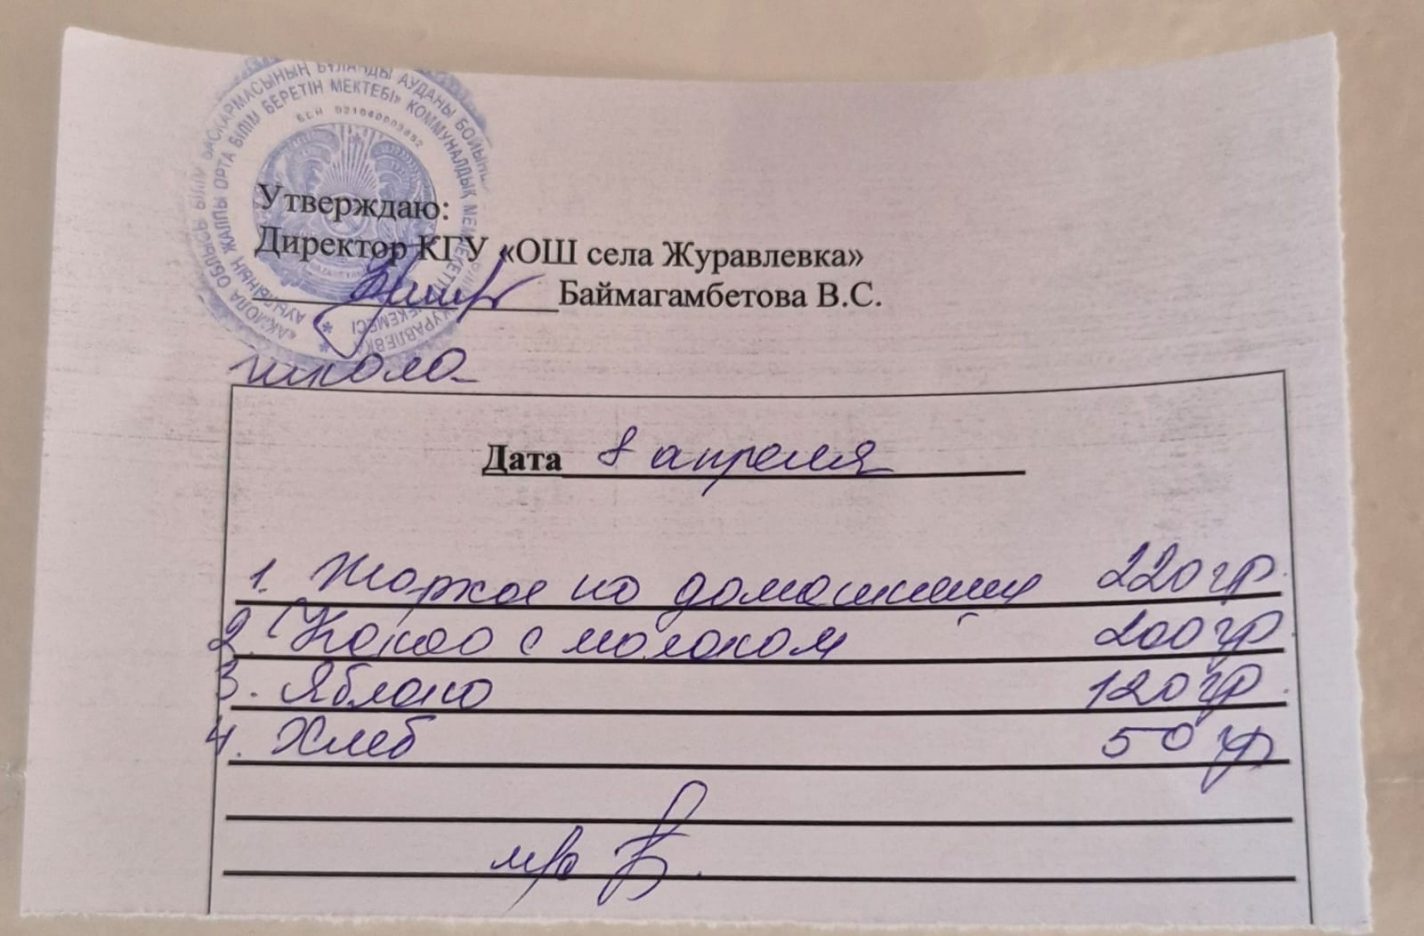 «АҚМОЛА ОБЛЫСЫ БІЛІМ БАСҚАРМАСЫНЫҢ БҰЛАНДЫ АУДАНЫ БОЙЫНША
АУЫЛЫНЫҢ ЖАЛПЫ ОРТА БІЛІМ БЕРЕТІН МЕКТЕБІ» КОММУНАЛДЫҚ МЕМЛЕКЕТТІК МЕКЕМЕСІ
ЖУРАВЛЕВКА
Утверждаю:
Директор КГУ «ОШ села Журавлевка»
Баймагамбетова В.С.
школа
Дата 8 апреля
1. Жаркое по домашнему 220 гр.
2. Какао с молоком 200 гр.
3. Яблоко 120 гр.
4. Хлеб 50 гр
м/р